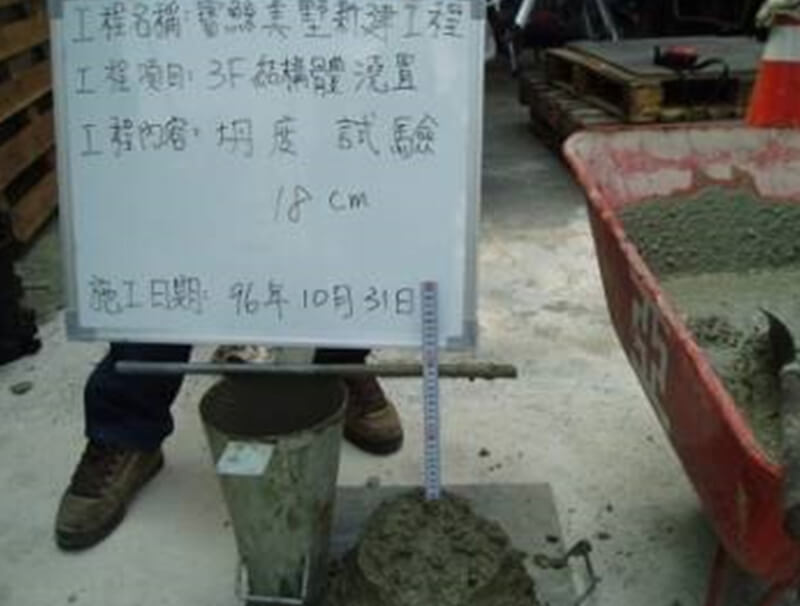 工程名稱: 富鯨美墅新建工程
工程項目: 3F結構體澆置
工程內容: 坍度 試驗
18 cm
施工日期: 96年10月31日